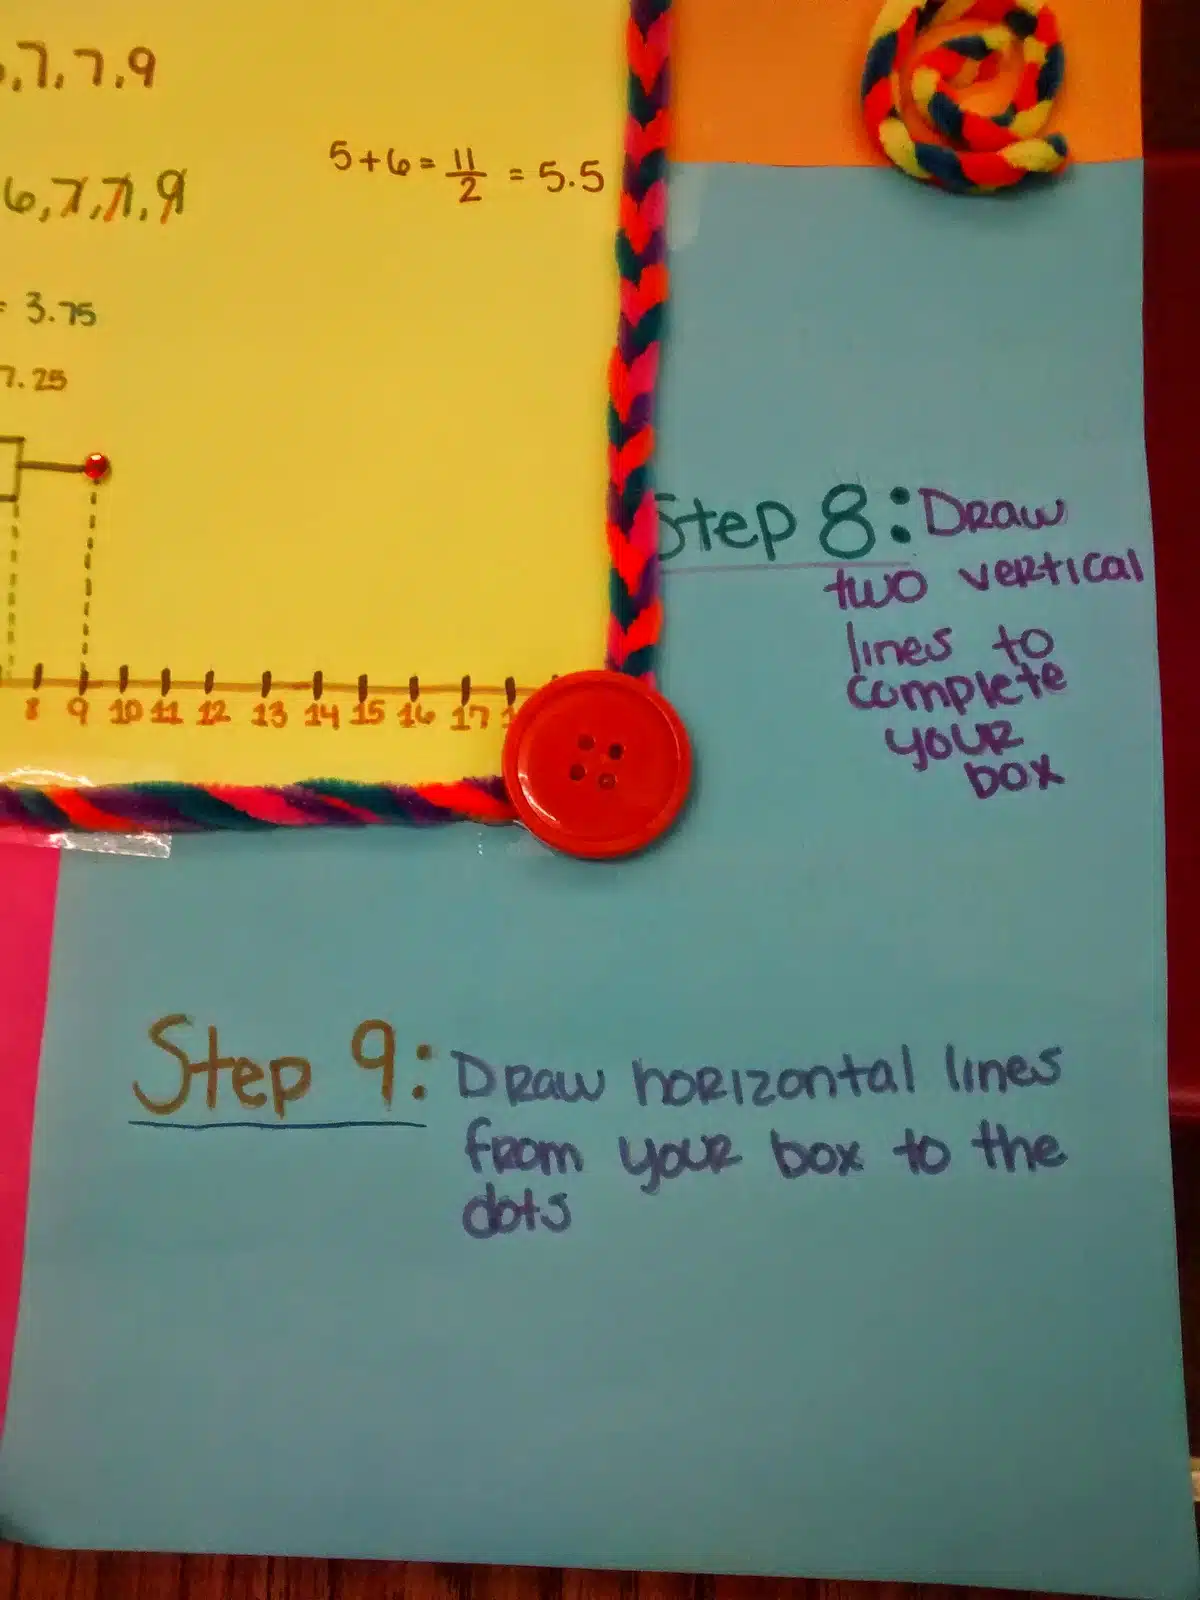 ,7,7,9
5+6=11/2 = 5.5
6,7,7,9
= 3.75
7.25
8 9 10 11 12 13 14 15 16 17
Step 8: Draw
two vertical
lines to
complete
your
box
Step 9: Draw horizontal lines
from your box to the
dots